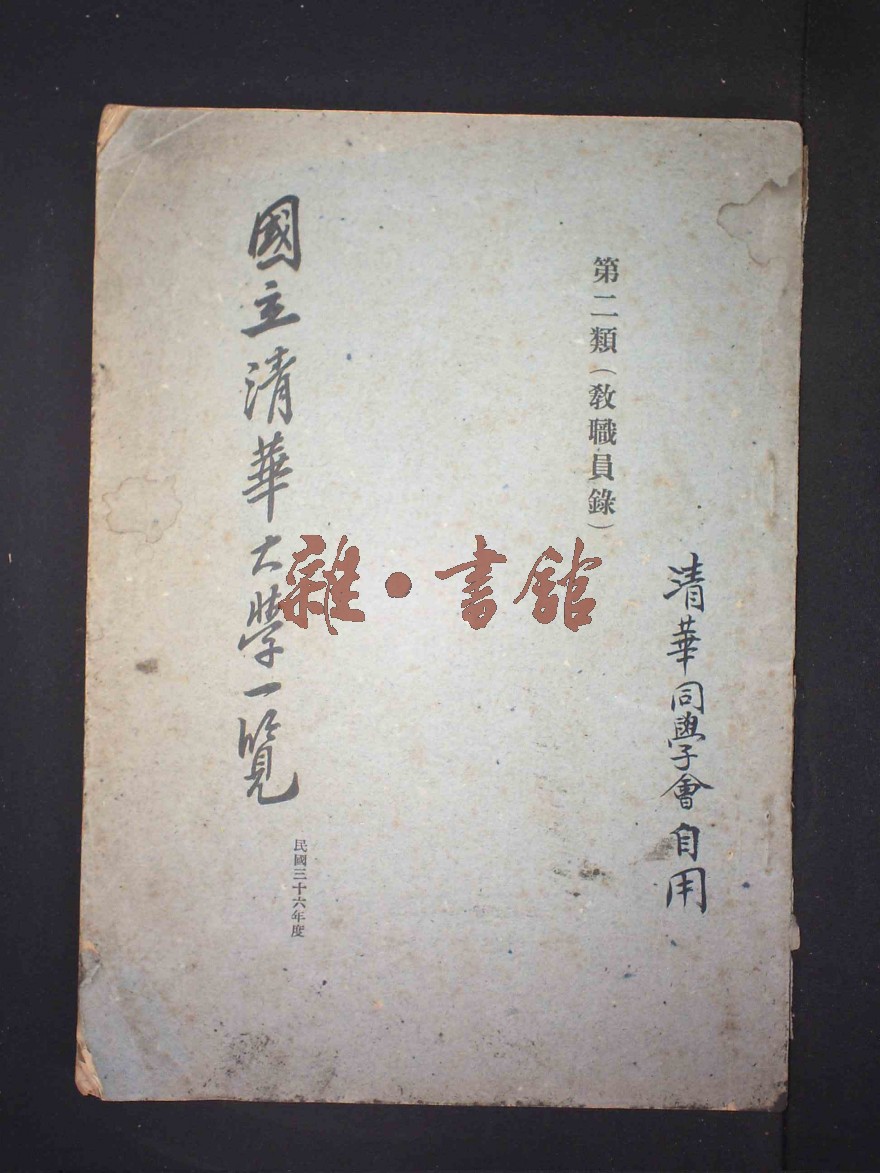 清華同學會自用
第二類（敎職員錄）
國立清華大學一覽
民國三十六年度
雜·書館